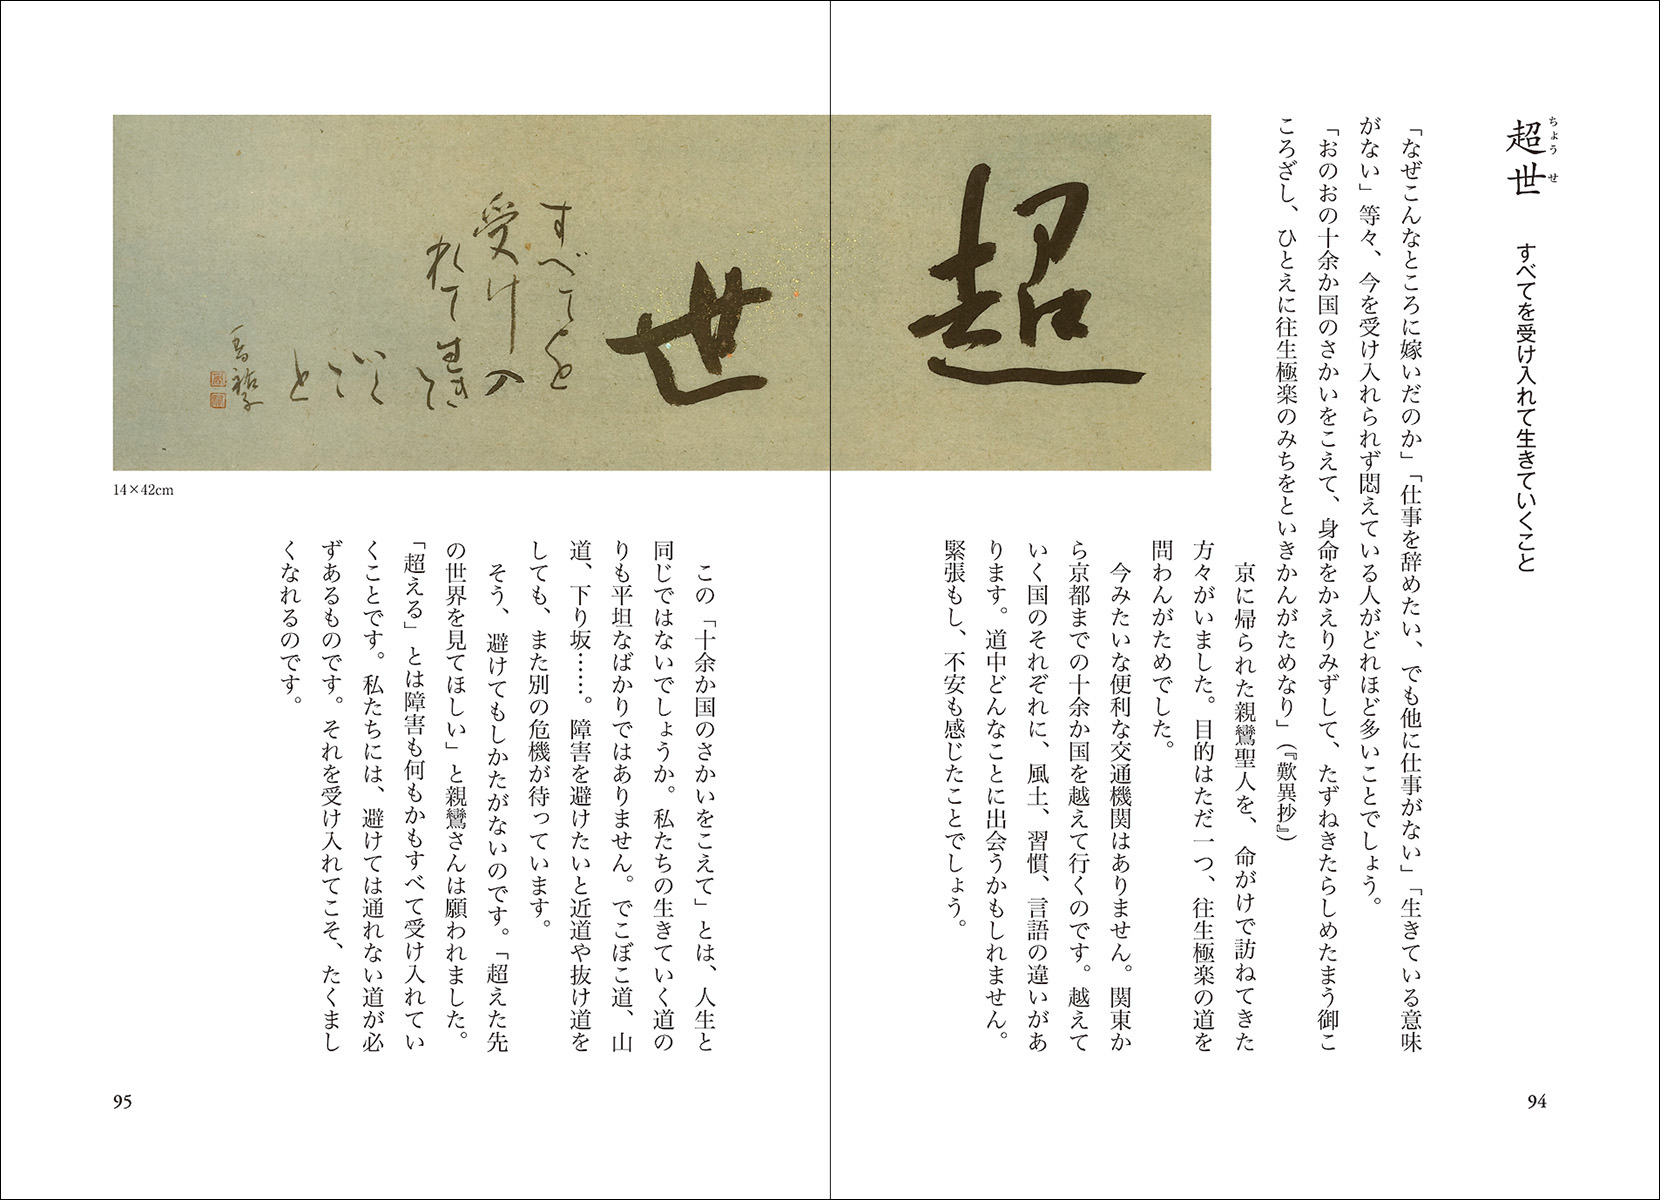 超世
ちょうせ
すべてを受け入れて生きていくこと
「なぜこんなところに嫁いだのか」「仕事を辞めたい、でも他に仕事がない」「生きている意味
がない」等々、今を受け入れられず悶えている人がどれほど多いことでしょう。
「おのおの十余か国のさかいをこえて、身命をかえりみずして、たずねきたらしめたまう御こ
ころざし、ひとえに往生極楽のみちをといきかんがためなり」（『歎異抄』）
京に帰られた親鸞聖人を、命がけで訪ねてきた
方々がいました。目的はただ一つ、往生極楽の道を
問わんがためでした。
今みたいな便利な交通機関はありません。関東か
ら京都までの十余か国を越えて行くのです。越えて
いく国のそれぞれに、風土、習慣、言語の違いがあ
ります。道中どんなことに出会うかもしれません。
緊張もし、不安も感じたことでしょう。
94
超
世
すべてを
受け入
れて生き
て
いく
こと
14×42cm
この「十余か国のさかいをこえて」とは、人生と
同じではないでしょうか。私たちの生きていく道の
りも平坦なばかりではありません。でこぼこ道、山
道、下り坂……。障害を避けたいと近道や抜け道を
しても、また別の危機が待っています。
そう、避けてもしかたがないのです。「超えた先
の世界を見てほしい」と親鸞さんは願われました。
「超える」とは障害も何もかもすべて受け入れてい
くことです。私たちには、避けては通れない道が必
ずあるものです。それを受け入れてこそ、たくまし
くなれるのです。
95